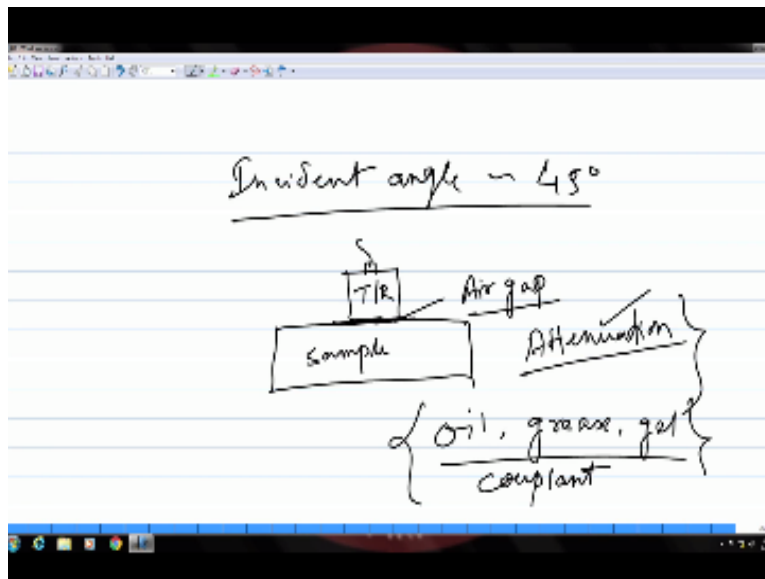 Incident angle ~ 45°
T/R
Air gap
sample
Attenuation
oil, grease, gel
couplant